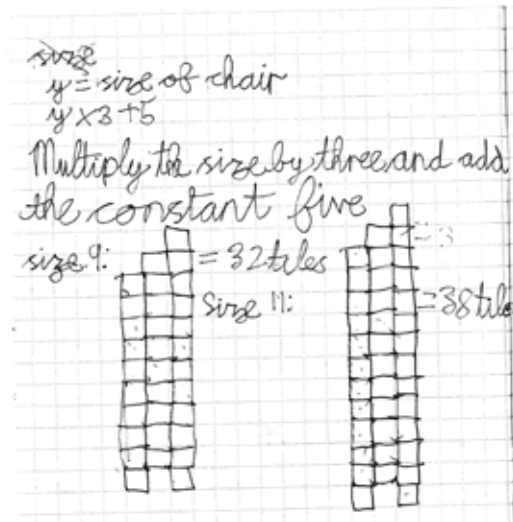 size
y = size of chair
y x 3 + 5
Multiply the size by three and add
the constant five
size 9: = 32 tiles
Size 11: = 38 tile